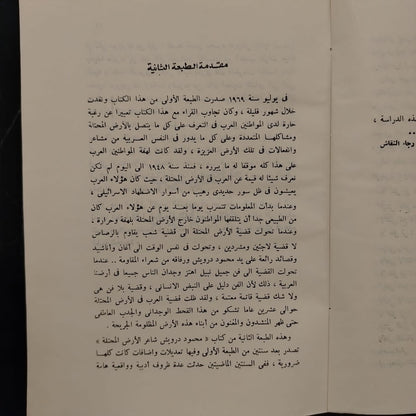 مقدمة الطبعة الثانية
فى يوليو سنة ١٩٦٩ صدرت الطبعة الأولى من هذا الكتاب ونفدت
خلال شهور قليلة ، وكان تجاوب القراء مع هذا الكتاب تعبيرا عن رغبة
حارة لدى المواطنين العرب فى التعرف على كل ما يتصل بالأرض المحتلة
ومشاكلها المتعددة وعلى كل ما يدور فى النفس العربية من مشاعر
وانفعالات فى تلك الأرض العزيزة ، ولقد كانت لهفة المواطنين العرب
على هذا كله موقفا له ما يبرره ، فمنذ سنة ١٩٤٨ الى اليوم لم نكن
نعرف شيئا له قيمة عن العرب فى الأرض المحتلة ، حيث كان هؤلاء العرب
يعيشون فى ظل سور حديدى رهيب من أسوار الاضطهاد الاسرائيلى ،
وعندما بدأت المعلومات تتسرب يوما بعد يوم عن هؤلاء العرب كان
من الطبيعى جدا أن يتلقفها المواطنون خارج الأرض المحتلة بلهفة وحرارة ،
وعندما تحولت قضية الأرض المحتلة الى قضية شعب يقاوم بالرصاص
لا قضية لاجئين ومشردين ، وتحولت فى نفس الوقت الى أغان وأناشيد
وقصائد رائعة على يد محمود درويش ورفاقه من شعراء المقاومة .. عندما
تحولت القضية الى فن جميل نبيل اهتز وجدان الناس جميعا فى أرضنا
العربية ، ذلك لأن الفن دليل على النبض الانسانى ، وقضية بلا فن هى
ولا شك قضية قائمة معتمة ، ولقد ظلت قضية العرب فى الأرض المحتلة
حوالى عشرين عاما تشكو من هذا القحط الوجدانى والجدب العاطفى
حتى ظهر المنشدون والمغنون من أبناء هذه الأرض المظلومة الجريحة .
وهذه الطبعة الثانية من كتاب « محمود درويش شاعر الأرض المحتلة »
تصدر بعد سنتين من الطبعة الأولى وفيها تعديلات واضافات كانت كلها
ضرورية ، ففى السنتين الماضيتين حدثت عدة ظروف أدبية وواقعية هامة
ذه الدراسة ،
..
رجاء النقاش